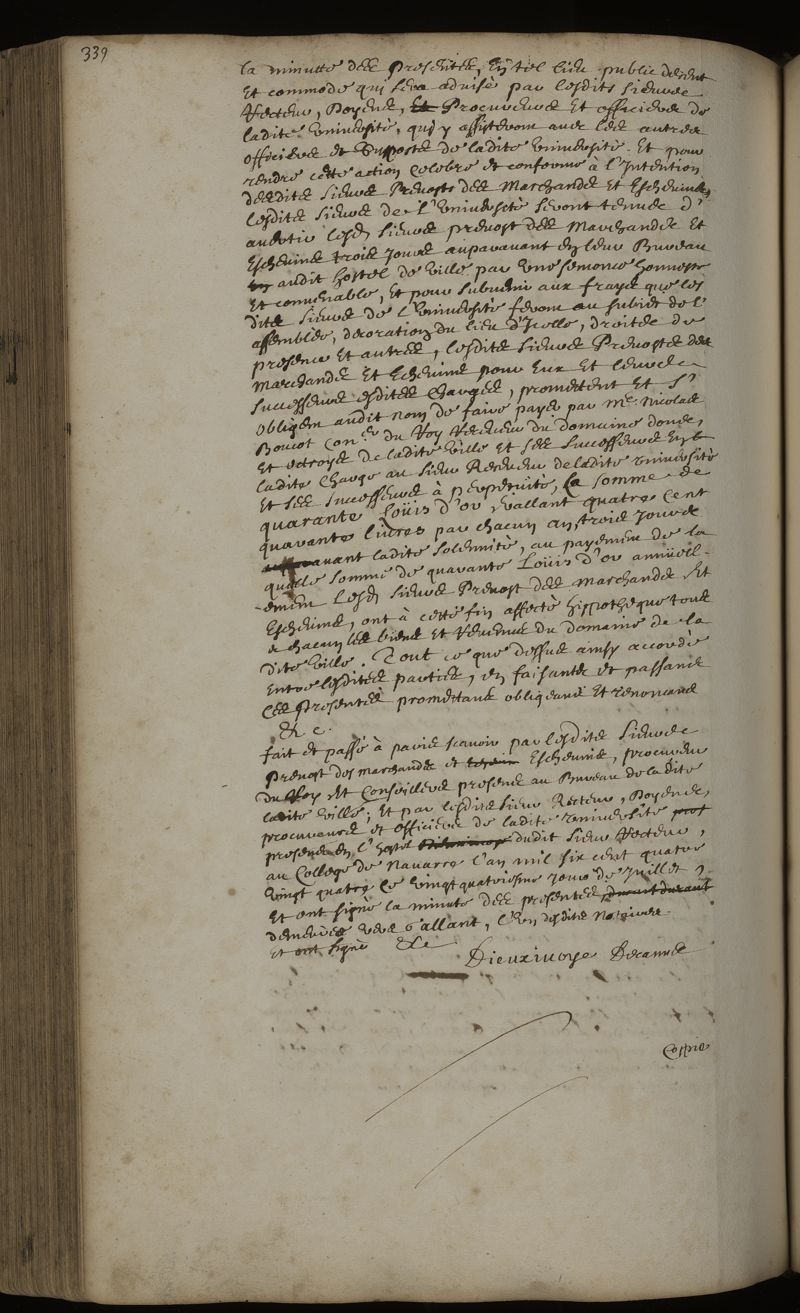 339
la minutte des Presentes, En tel lieu public decent
Et commode qui sera advisé par lesdits sieurs
Recteur, Doyens, Procureurs Et officiers de
ladite Université, qui y assisteront avec les autres
officiers et Suppots de ladite Université. Et pour
rendre cette action Celebre et conforme à l'Intention
desdits sieurs Prevost des Marchands Et Eschevins,
lesdits sieurs de l'Université seront tenus d'
avertir lesd. sieurs prevost des Marchands Et
Eschevins trois jours auparavant En leur Bureau
audit hostel de ville par une semonce honneste
Et convenable, Et pour subvenir aux frays que les
dits sieurs de l'Université feront au subiet de l'
assemblée, decoration du lieu d'Icelle, droits de
presence Et autres, lesdits sieurs Prevosts des
Marchands Et Eschevins pour Eux Et leurs
successeurs esdites charges, promettent Et s'
obligent audit nom de faire payer par Me. Nicolas
Boucot Coner. du Roy Receveur du domaine dons,
Et octroys de ladite ville Et ses successeurs En
ladite charge au sieur Receveur de ladite université
Et ses successeurs à perpetuité, la somme de
quarante Loüis d'or vallant quatre cent
quarante livres par chacun an trois jours
avant ladite solemnité, au payement de la
quelle somme de quarante Loüis d'or annüell-
ement lesd. sieurs Prevost des Marchands Et
Eschevins, ont à cette fin affecté hippotheque tous
& chacun les biens Et Revenus du Domaine de la
dite ville. Tout ce que dessus ainsy accordé
Entre lesdites parties, En faisant et passant
Ces Presentes promettant obligeant Et renonçant
Et c.
fait et passé à paris scavoir par lesdits sieurs
Prevost des marchands et Eschevins, procureur
du Roy Et Conseillers presens au Bureau de la dite
ladite ville; Et par lesdits sieur Recteur, Doyens,
procureurs et officiers de ladite université
presens En l'hostel dudit sieur Recteur,
au College de Navarre l'an mil six cent quatre
vingt quatre le vingt quatriesme jour de Juillet,
Et ont signé la minute des presentes
demeurée vers Gallant, l'un desdits Notaires
Et ont signé &c
Dieuxivoye Decanus
Coppie